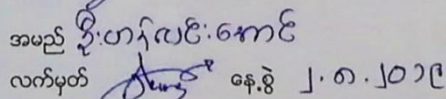 အမည် ဦးဟန်လင်းအောင်
လက်မှတ် နေ့စွဲ ၂.၈.၂၀၁၉